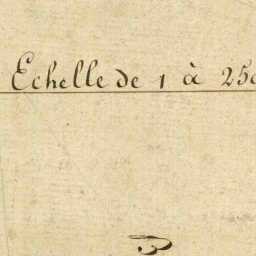 Echelle de 1 à 250